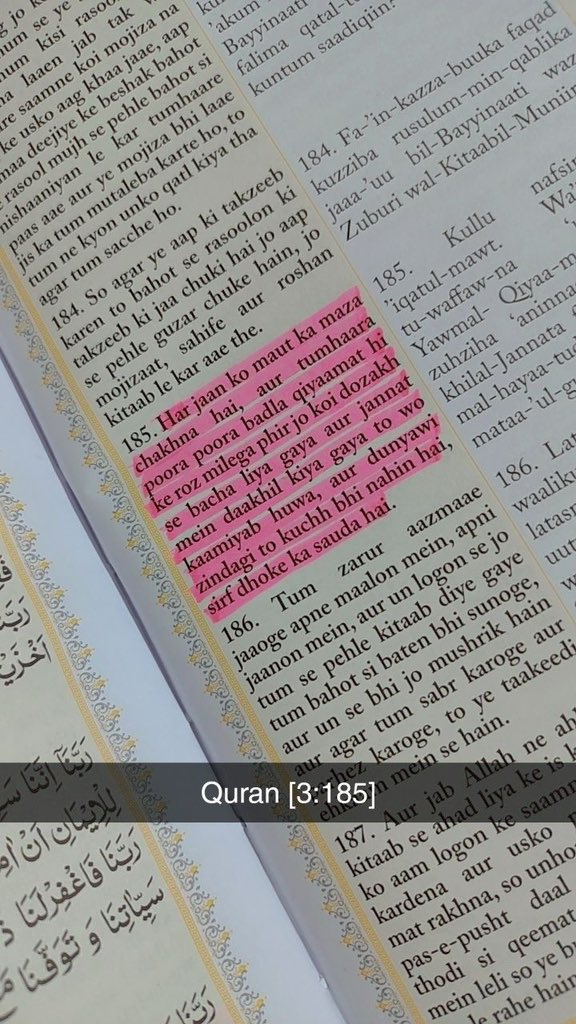 رَبَّنَا إِنَّنَا
لِلْإِيمَانِ أَنْ
رَبَّنَا فَاغْفِرْلَنَا
سَيِّاٰتِنَا وَ تَوَفَّنَا
رَبَّنَا
hum kisi
laaen jab tak
saamne koi mojiza na
ke usko aag khaa jaae, aap
deejiye ke beshak bahot
rasool mujh se pehle bahot si
nishaaniyan le kar tumhaare
paas aae aur ye mojiza bhi laae
jis ka tum mutaleba karte ho, to
tum ne kyon unko qatl kiya tha
agar tum sacche ho.
184. So agar ye aap ki takzeeb
karen to bahot se rasoolon ki
takzeeb ki jaa chuki hai jo aap
se pehle guzar chuke hain, jo
mojizaat, sahife aur roshan
kitaab le kar aae the.
185. Har jaan ko maut ka maza
chakhna hai, aur tumhaara
poora poora badla qiyaamat hi
ke roz milega phir jo koi dozakh
se bacha liya gaya aur jannat
mein daakhil kiya gaya to wo
kaamiyab huwa, aur dunyawi
zindagi to kuchh bhi nahin hai,
sirf dhoke ka sauda hai.
186. Tum zarur aazmaae
jaaoge apne maalon mein, apni
jaanon mein, aur un logon se jo
tum se pehle kitaab diye gaye
tum bahot si baten bhi sunoge,
aur un se bhi jo mushrik hain
aur agar tum sabr karoge aur
karoge, to ye taakeedi
mein se hain.
187. Aur jab Allah ne
kitaab se ahad liya ke is
ko aam logon ke saamn
kardena aur usko
mat rakhna, so unho
pas-e-pusht daal
thodi si qeemat
mein leli so ye bu
le rahe hain
Bayyinaati
falima qatal-t
kuntum saadiqiin
184. Fa-'in-kazza-buuka faqad
kuzziba rusulum-min-qablika
jaaa-'uu bil-Bayyinaati waz
Zuburi wal-Kitaabil-Muniir
185. Kullu nafsin
'iqatul-mawt. Wa
tu-waffaw-na
Yawmal- Qiyaa-m
zuhziha 'aninna
khilal-Jannata f
mal-hayaa-tud
mataa-'ul-g
186. La
waaliku
latasm
Quran [3:185]